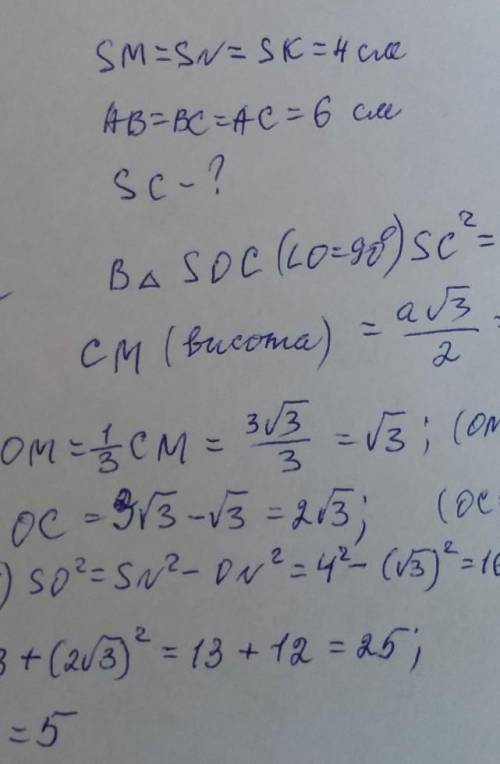 SM=SN=SK=4 см
AB=BC=AC=6 см
SC-?
В△ SOC (∠O=90⁰) SC²=
CM (висота) = a√3/2 =
OM=1/3 CM = 3√3/3 = √3; (OM
OC = 3√3-√3 = 2√3; (OC
) SO²=SN²-ON²=4²-(√3)²=16
3+(2√3)²=13+12=25;
=5